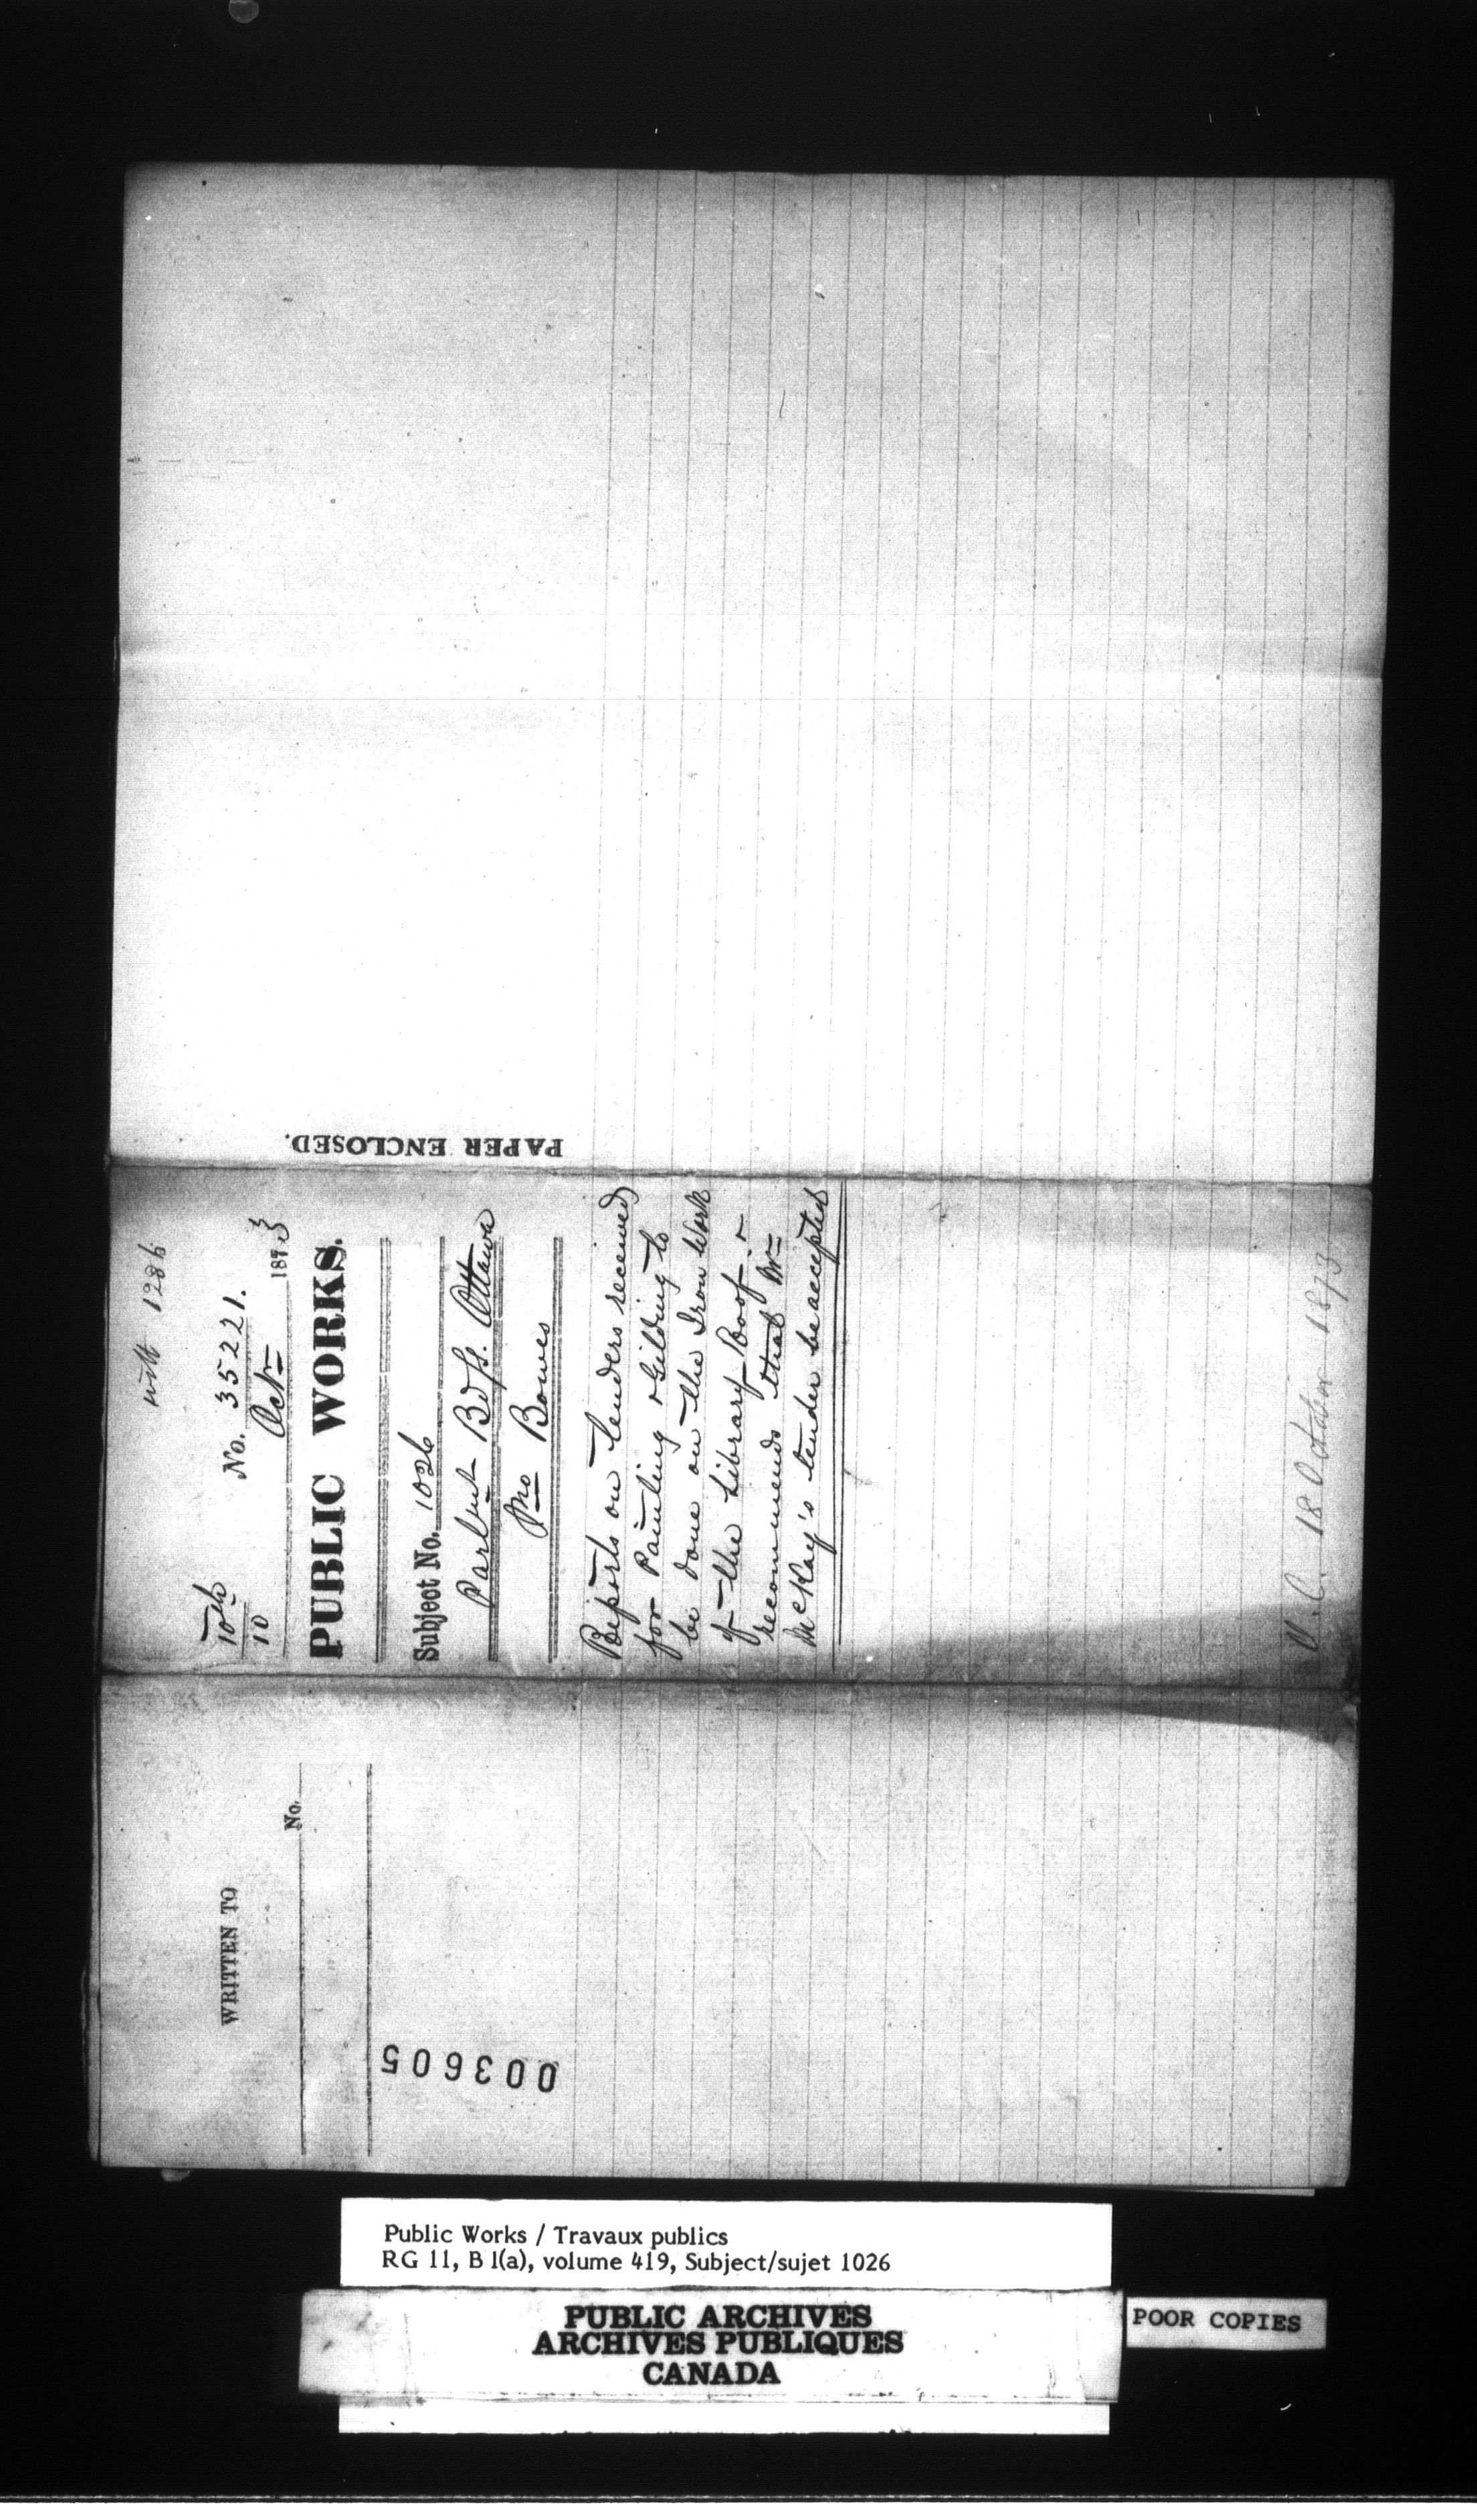 with 1286
10th
10
No. 35221.
Octr
1873
PUBLIC WORKS.
Subject No. 1026
Parlmt Bdgs. Ottawa
Bowes
Reports on tenders received
for Painting & Gilding to
be done on the Iron Work
of the Library Roof - &
recommends that Mr
McKay's tender be accepted
18 October 1873
PAPER ENCLOSED.
WRITTEN TO
No.
003605
Public Works / Travaux publics
RG 11, B 1(a), volume 419, Subject/sujet 1026
PUBLIC ARCHIVES
ARCHIVES PUBLIQUES
CANADA
POOR COPIES